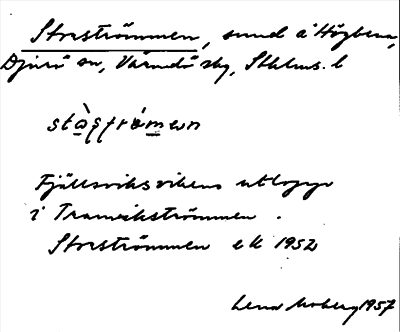 Storströmmen, sund å Högbena,
Djurö sn, Värmdö skg, Sthlms. l
Fjällsviksvikens utlopp
i Tranvikströmmen.
Storströmmen ek 1952
Lena Moberg 1957